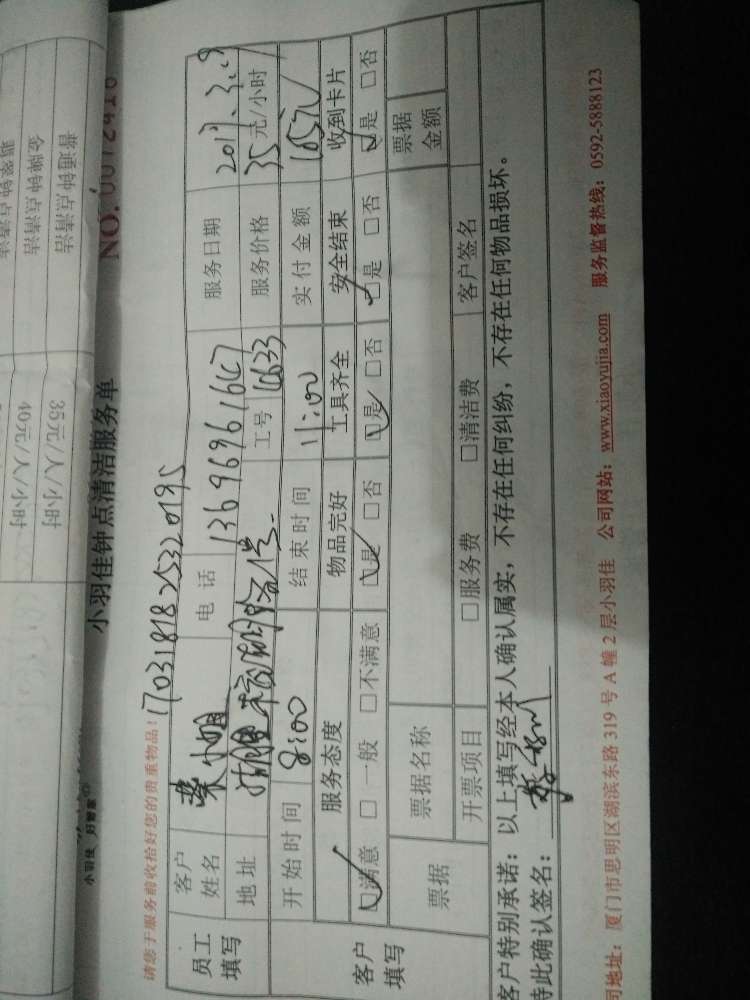 普通钟点清洁
金牌钟点清洁
35元/人/小时
40元/人/小时
小羽佳 好管家
小羽佳钟点清洁服务单
NO.
请您于服务前收拾好您的贵重物品!
员工填写
客户姓名
小姐
电话
服务日期
2017.3.19
地址
工号
服务价格
35元/小时
客户填写
开始时间
8:00
结束时间
11:00
实付金额
105元
服务态度
物品完好
工具齐全
安全结束
收到卡片
满意 □ 一般 □不满意
是 □否
是 □否
是 □否
是 □否
票据
票据名称
票据金额
开票项目
□服务费
□清洁费
客户签名
客户特别承诺:以上填写经本人确认属实,不存在任何纠纷,不存在任何物品损坏。
特此确认签名:
司地址:厦门市思明区湖滨东路 319 号 A 幢 2 层小羽佳 公司网站:www.xiaoyujia.com 服务监督热线:0592-5888123